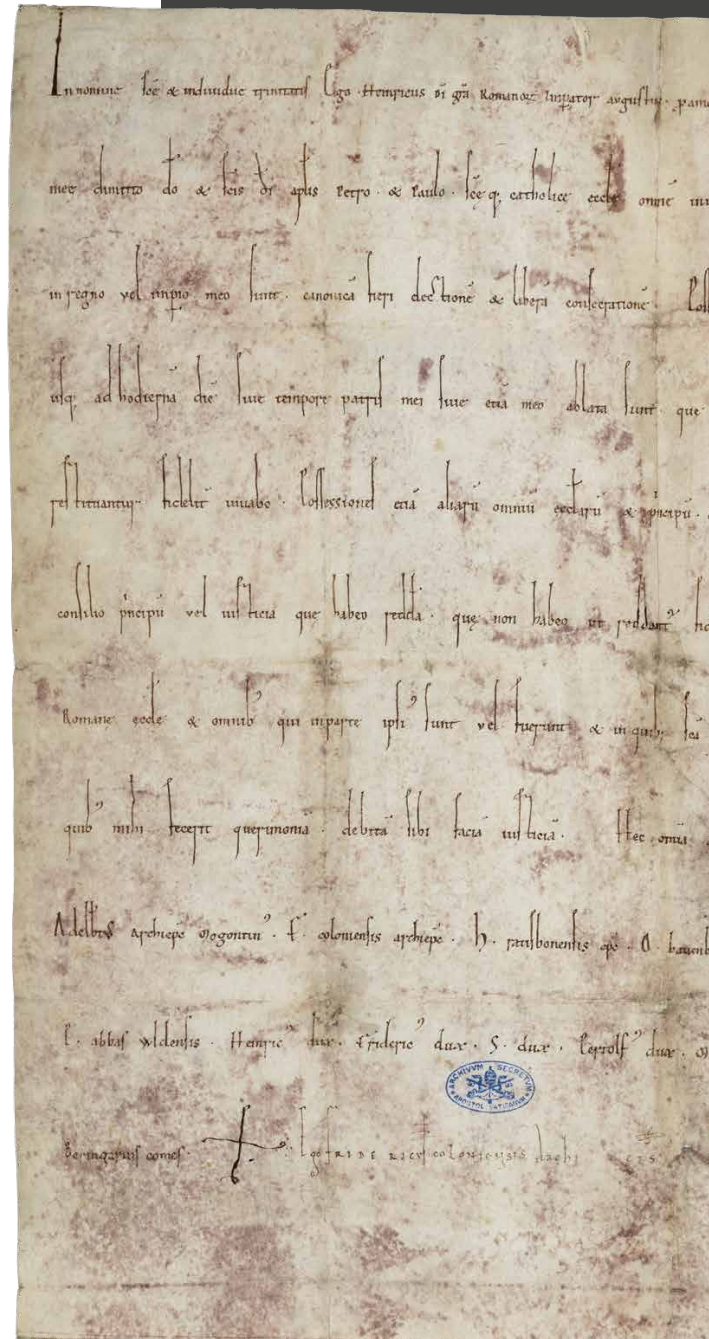 In nomine scę & individue trinitatis Ego · Heinricus dī grā Romanoꝝ Impator augustus ·
meę dimitto dō & scīs dī aplīs Petro · & Paulo · scęq; catholicę ecclę omnē
in regno vel impio meo sunt · canonicā fieri electionē & liberā consecrationē ·
usq; ad hodiernā diē sive tempore patris mei sive etiā meo ablata sunt · que
restituantur fidelit iuvabo · Possessiones etiā aliarū omniū ecclarū & pncipū ·
consilio pncipū vel iusticia que habeo reddā · quę non habeo ut reddant᾽
Romanę ecclę & omnib᾽ qui in parte ipsi᾽ sunt vel fuerunt & in quib;
quib᾽ mihi fecerit querimoniā · debitā sibi faciā iusticiā · Hec omīa
Adelbt᾽ archiepc mogontin᾽ · F · coloniensis archiepc · H · ratisbonensis epc · O ·
E · abbas vvldensis · Heinric᾽ dux · Frideric᾽ dux · S · dux · Pertolf᾽ dux ·
Beringarius comes · Ego fridericus coloniensis archi
ARCHIVVM SECRETVM APOSTOL VATICANVM